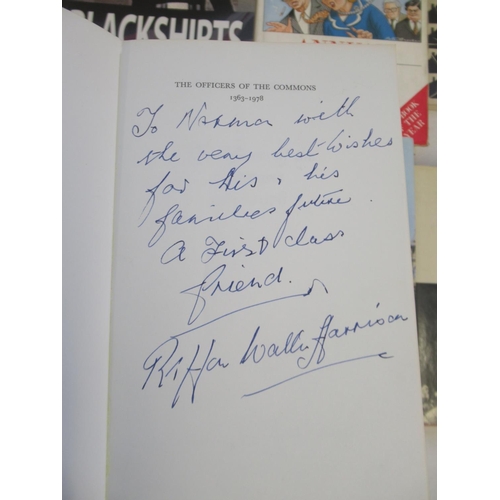 BLACKSHIRTS
ANNU
BOOK
THE
YEAR
THE OFFICERS OF THE COMMONS
1363–1978
To Norman with
the very best Wishes
for His & his
families future.
A First class
friend.
Wally Harrison